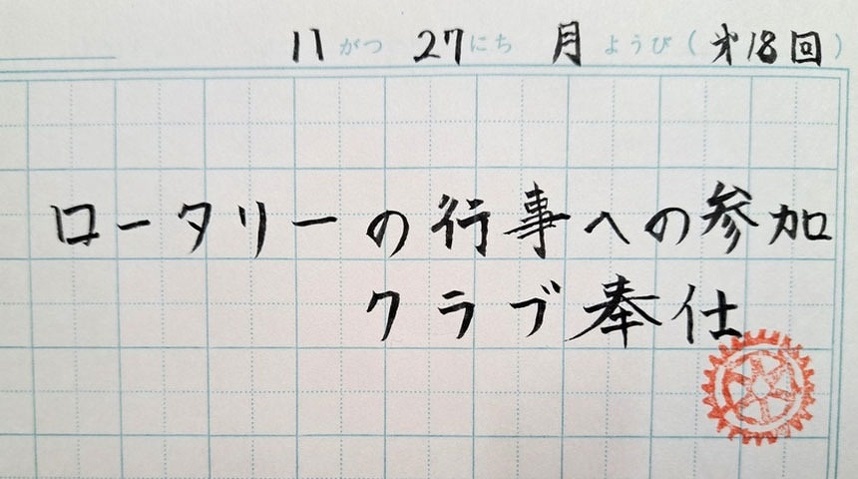 11がつ 27にち 月ようび(才18回)
ロータリーの行事への参加
クラブ奉仕